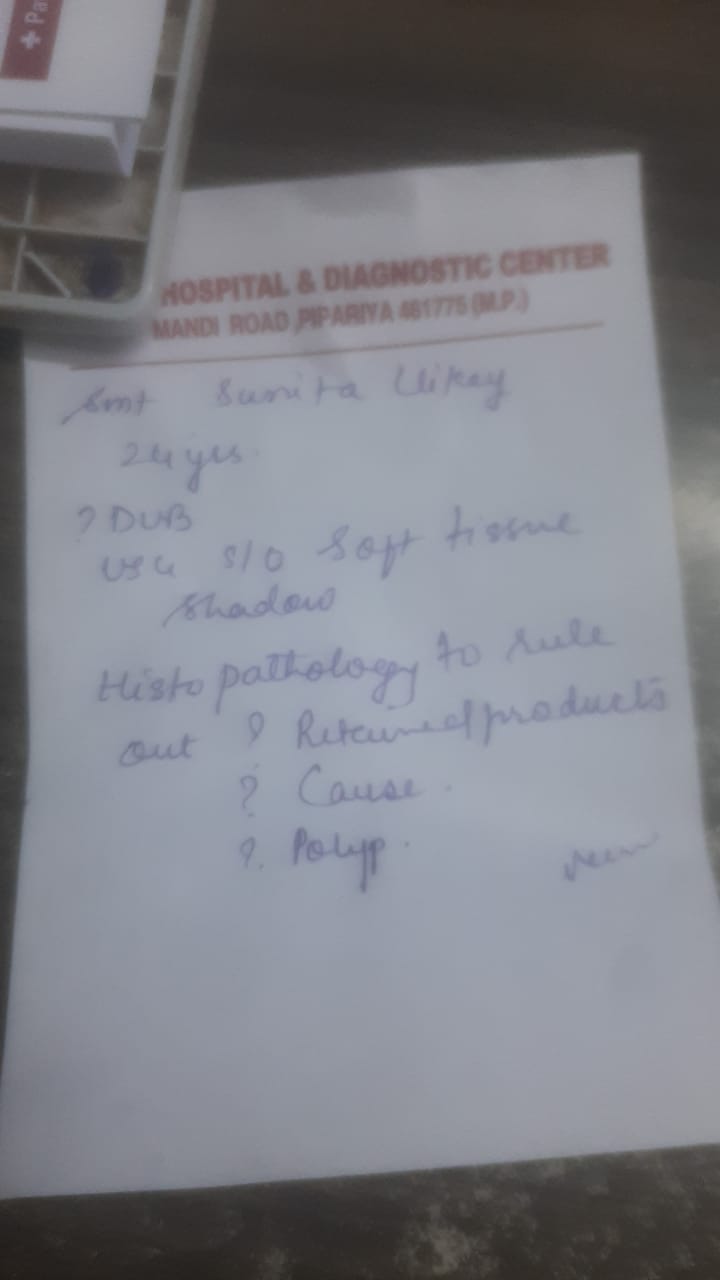 + Pa
HOSPITAL & DIAGNOSTIC CENTER
MANDI ROAD, PIPARIYA 461775 (M.P.)
Smt Sunita Uikey
24 yrs.
? DUB
USG S/O Soft tissue
Shadow
Histopathology to rule
out ? Retained products
? Cause.
?. Polyp.